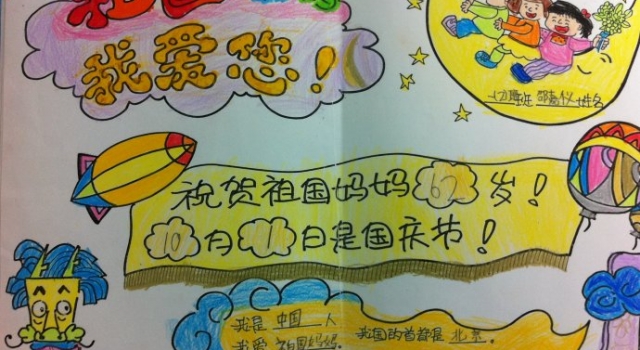 我爱您!
祝贺祖国妈妈62岁!
10月1日是国庆节!
我是中国人
我爱祖国妈妈.
我国的首都是北京.